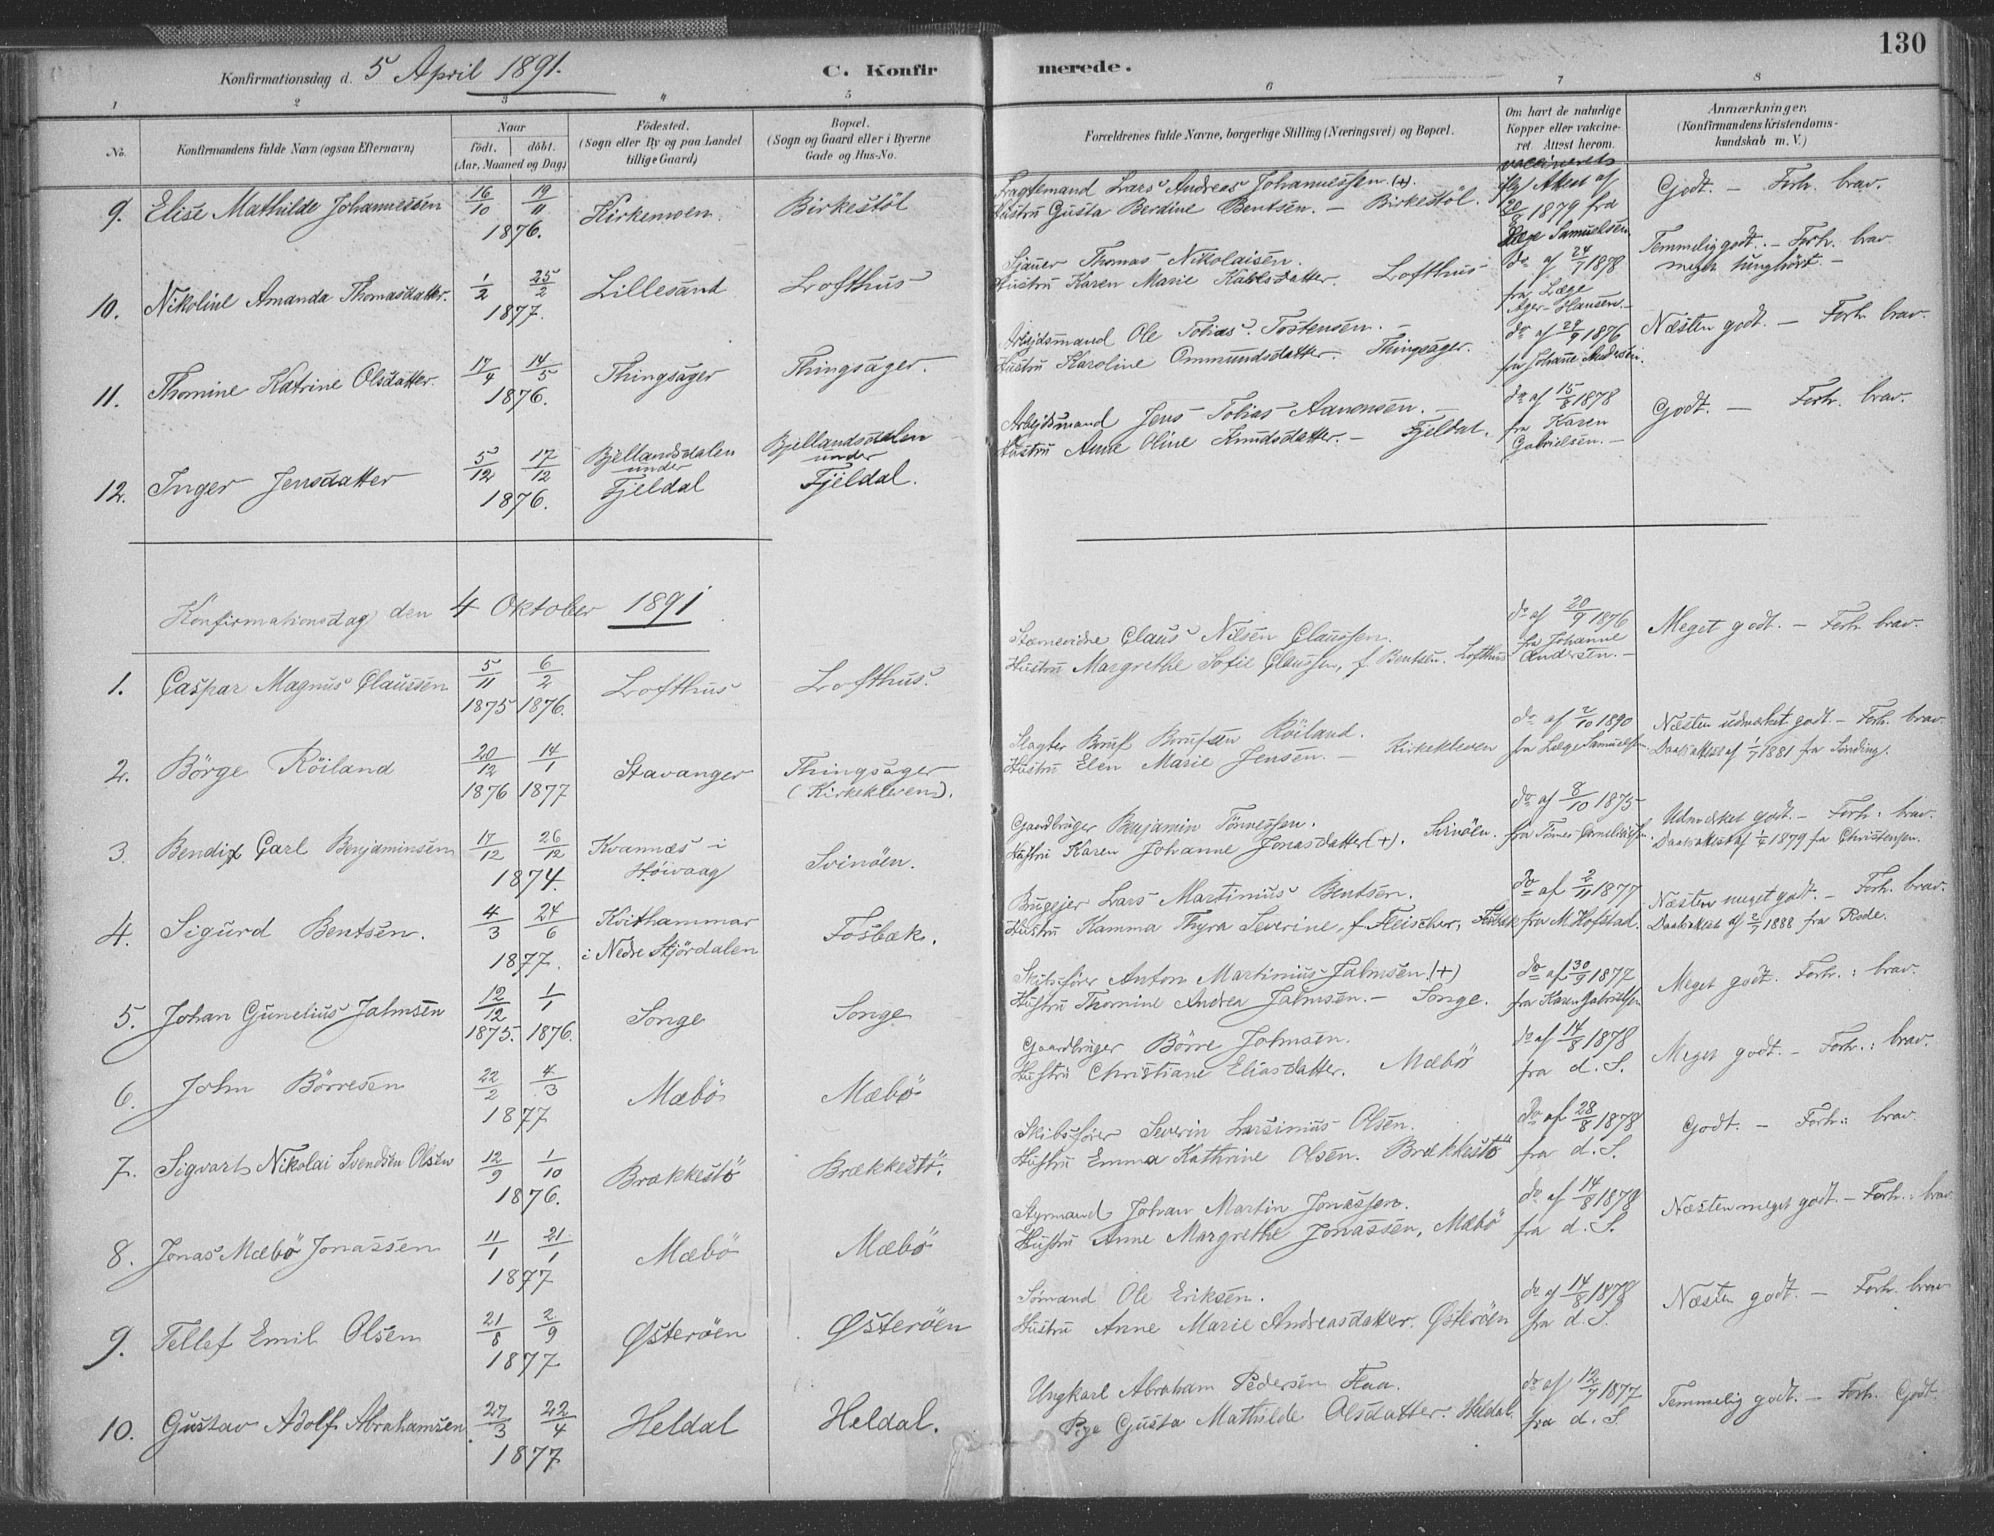 130
Konfirmationsdag d. 5 April 1891.
C. Konfirmerede.
1 2 3 4 5 6 7 8
No.
Konfirmandens fulde Navn (ogsaa Efternavn)
Naar
født. døbt.
(Aar, Maaned og Dag)
Fødested.
(Sogn eller By og paa Landet
tillige Gaard)
Bopæl.
(Sogn og Gaard eller i Byerne
Gade og Hus-No.
Forældrenes fulde Navne, borgerlige Stilling (Næringsvei) og Bopæl.
Om havt de naturlige
Kopper eller vakcine-
ret. Attest herom.
Anmærkninger.
(Konfirmandens Kristendoms-
kundskab m. V.)
9. Elise Mathilde Johannessen 16/10 19/11 1876. Kirkemoen. Birkestöl
Fragtemand Lars Andreas Johannessen. (+).
Hustru Gusta Berdine Bentsen. — Birkestöl.
vaccineret
flg. Attest af
20/8 1879 fra
Læge Samuelsen
Godt. — Forh. brav.
10. Nikoline Amanda Thomasdatter. 1/2 25/2 1877. Lillesand Lofthus
Sjauer Thomas Nikolaisen.
Hustru Karen Marie Kallsdatter. Lofthus
do af 24/7 1878
fra Læge
Ager-Hansen.—
Temmelig godt. — Forh. brav
meget tunghört. —
11. Thomine Katrine Olsdatter. 17/4 14/5 1876. Thingsager Thingsager.
Arbejdsmand Ole Tobias Tostensen. —
Hustru Karoline Ommundsdatter. Thingsager.
do af 29/9 1876
fra Johanne Andersen.
Næsten godt. — Forh. brav.
12. Inger Jensdatter 5/12 17/12 1876. Bjellandsdalen
under
Fjeldal
Bjellandsdalen
under
Fjeldal.
Arbejdsmand Jens Tobias Aanensen. —
Hustru Anne Oline Knudsdatter. — Fjeldal.
do af 15/8 1878
fra Karen
Gabrielsen. —
Godt. — Forh. brav.
Konfirmationsdag den 4 Oktober 1891
1. Caspar Magnus Claussen 5/11 1875 6/2 1876. Lofthus Lofthus.
Claus Nilsen Claussen.
Hustru Margrethe Sofie Claussen, f. Bentsen. Lofthus
do af 20/9 1876
fra Johanne
Andersen. —
Meget godt. — Forh. brav.
2. Börge Röiland 20/12 1876 14/1 1877 Stavanger Thingsager
(Kirkekleven).
Slagter Röiland.
Hustru Elen Marie Jensen. — Kirkekleven
do af 2/10 1890
fra Læge Samuelsen
Næsten udmærket godt. — Forh. brav
Daabsattest af 1/7 1881 fra Sönding.
3. Bendix Carl Benjaminsen 17/12 26/12 1874. Kvannæs i
Höivaag
Svinöen.
Gaardbruger Benjamin Tönnessen.
Hustru Karen Johanne Jonasdatter (+). Svinöen.
do af 8/10 1875
fra Tönnes Corneliussen.
Udmærket godt. — Forh.: brav.
Daabsattest af 1/4 1879 fra Christensen.
4. Sigurd Bentsen. 4/3 24/6 1877. Kvithammar
i Nedre Stjördalen
Fosbæk.
Brugejer Lars Martinius Bentsen.
Hustru Kamma Thyra Severine, f. Fleischer, Fosbæk
do af 2/11 1877
fra M. Hofstad.
Næsten meget godt. — Forh. brav.
Daabsattest af 2/7 1888 fra Rode.
5. Johan Gunelius Jahnsen 12/12 1875. 1/1 1876. Songe Songe
Skibsförer Anton Martinius Jahnsen. (+)
Hustru Thomine Andrea Jahnsen. — Songe.
do af 30/9 1877
fra Karen Gabrielsen
Meget godt. Forh.: brav.
6. John Börresen 22/2 4/3 1877 Mæbö Mæbö
Gaardbruger Börre Johnsen.
Hustru Christiane Eliasdatter. Mæbö
do af 14/8 1878
fra d. S.
Meget godt. — Forh.: brav.
7. Sigvart Nikolai Svendsen Olsen 12/9 1/10 1876. Brækkestö Brækkestö.
Skibsförer Severin Larsinius Olsen.
Hustru Emma Kathrine Olsen. Brækkestö
do af 28/8 1878
fra d. S.
Godt. — Forh.: brav.
8. Jonas Mæbö Jonassen 11/1 21/1 1877 Mæbö Mæbö
Styrmand Johan Martin Jonassen.
Hustru Anne Margrethe Jonassen, Mæbö
do af 14/8 1878
fra d. S.
Næsten meget godt. — Forh.: brav
9. Tellef Emil Olsen 21/8 2/9 1877 Østeröen Østeröen
Sömand Ole Eriksen.
Hustru Anne Marie Andreasdatter. Østeröen
do af 14/8 1878
fra d. S.
Næsten godt. — Forh. brav
10. Gustav Adolf Abrahamsen. 27/3 22/4 1877 Heldal Heldal.
Ungkarl Abraham Pedersen Flaa.
Pige Gusta Mathilde Olsdatter. Heldal.
do af 12/7 1877
fra d. S.
Temmelig godt. — Forh. Godt.